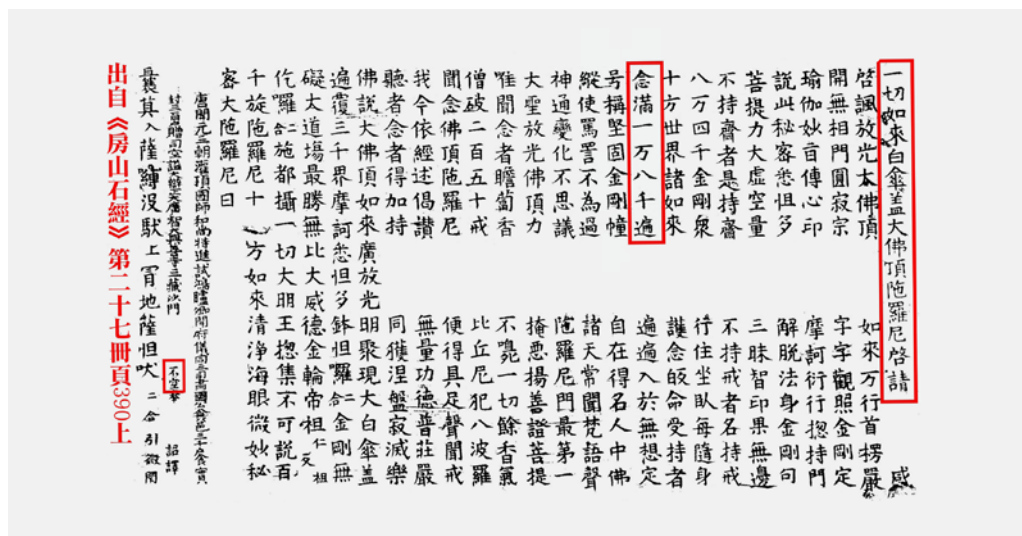 一切如來白傘盖大佛頂陁羅尼啓請 感
啓諷放光大佛頂 如來万行首楞嚴
開無相門圓寂宗 字字觀照金剛定
瑜伽妙旨傳心印 摩訶衍行揔持門
說此秘密悉怛多 解脫法身金剛句
菩提力大虛空量 三昧智印果無邊
不持齋者是持齋 不持戒者名持戒
八万四千金剛衆 行住坐臥每隨身
十方世界諸如來 護念皈命受持者
念滿一万八千遍 遍遍入於無想定
号稱堅固金剛幢 自在得名人中佛
縱使罵詈不為過 諸天常聞梵語聲
神通變化不思議 陁羅尼門最第一
大聖放光佛頂力 掩惡揚善證菩提
唯聞念者瞻蔔香 不嗅一切餘香氣
僧破二百五十戒 比丘尼犯八波羅
聞念佛頂陁羅尼 便得具足聲聞戒
我今依經述偈讚 無量功德普莊嚴
聽者念者得加持 同獲涅盤寂滅樂
佛說大佛頂如來廣放光明聚現大白傘盖
遍覆三千界摩訶悉怛多鉢怛囉二合金剛無
礙大道場最勝無比大威德金輪帝祖仁祖反
仡囉二合施都攝一切大明王揔集不可說百
千旋陁羅尼十方如來清淨海眼微妙秘
密大陁羅尼曰
唐開元三朝灌頂國師和尚特進試鴻臚卿開府儀同三司肅國公食邑三千戶食實
封三百贈司空謚大辯正廣智三藏沙門 不空奉 詔譯
曩莫入薩嚩沒馱 冐地薩怛吠 二合引微閇
出自《房山石經》第二十七冊頁390上